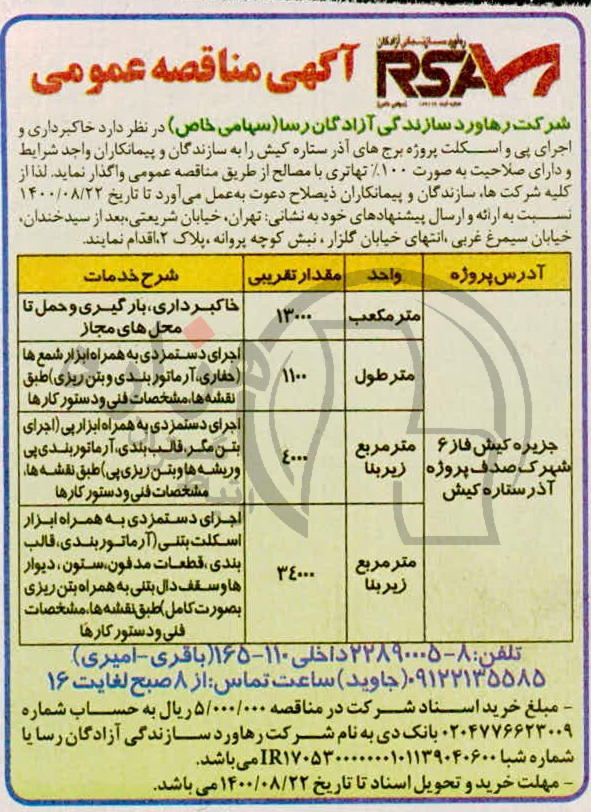 رهآورد سازندگی آزادگان
RSA
آگهی مناقصه عمومی
شرکت رهاورد سازندگی آزادگان رسا(سهامی خاص) در نظر دارد خاکبرداری و
اجرای پی و اسکلت پروژه برج های آذر ستاره کیش را به سازندگان و پیمانکاران واجد شرایط
و دارای صلاحیت به صورت ۱۰۰٪ تهاتری با مصالح از طریق مناقصه عمومی واگذار نماید. لذا از
کلیه شرکت ها، سازندگان و پیمانکاران ذیصلاح دعوت به عمل می آورد تا تاریخ ۱۴۰۰/۰۸/۲۲
نسبت به ارائه و ارسال پیشنهادهای خود به نشانی: تهران، خیابان شریعتی، بعد از سیدخندان،
خیابان سیمرغ غربی ،انتهای خیابان گلزار ، نبش کوچه پروانه ،پلاک ۲،اقدام نمایند.
شرح خدمات مقدار تقریبی واحد آدرس پروژه
خاکبرداری، بارگیری و حمل تا
محل های مجاز
۱۳۰۰۰
متر مکعب
اجرای دستمزدی به همراه ابزار شمع ها
(حفاری، آرماتوربندی و بتن ریزی) طبق
نقشه ها، مشخصات فنی و دستور کارها
۱۱۰۰
متر طول
اجرای دستمزدی به همراه ابزار پی (اجرای
بتن مگر، قالب بندی، آرماتوربندی پی
وریشه ها و بتن ریزی پی) طبق نقشه ها،
مشخصات فنی و دستور کارها
۴۰۰۰
متر مربع
زیربنا
اجرای دستمزدی به همراه ابزار
اسکلت بتنی (آرماتوربندی، قالب
بندی ، قطعات مدفون، ستون ، دیوار
ها و سقف دال بتنی به همراه بتن ریزی
بصورت کامل) طبق نقشه ها، مشخصات
فنی و دستور کارها
۳۴۰۰۰
متر مربع
زیربنا
جزیره کیش فاز ۶
شهرک صدف پروژه
آذر ستاره کیش
تلفن: ۸-۲۲۸۹۰۰۰۵ داخلی ۱۱۰-۱۶۵ (باقری-امیری)
۰۹۱۲۲۱۳۵۵۸۵ (جاوید) ساعت تماس: از ۸ صبح لغایت ۱۶
- مبلغ خرید اسناد شرکت در مناقصه ۵/۰۰۰/۰۰۰ ریال به حساب شماره
۰۲۰۴۷۷۶۶۲۳۰۰۹ بانک دی به نام شرکت رهاورد سازندگی آزادگان رسا یا
شماره شبا IR۱۷۰۵۳۰۰۰۰۰۰۰۱۰۱۱۳۹۰۴۰۶۰۰ می باشد.
- مهلت خرید و تحویل اسناد تا تاریخ ۱۴۰۰/۰۸/۲۲ می باشد.